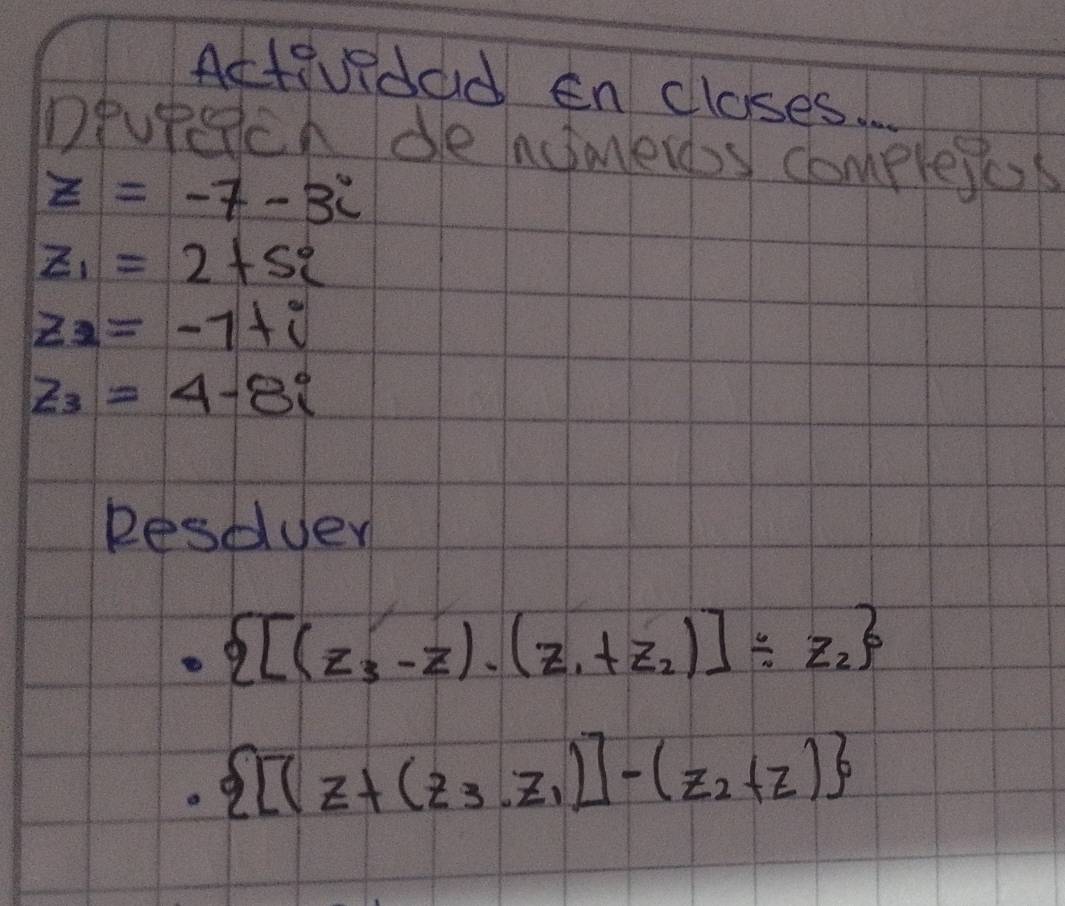 Actividad En clases...
División de números complejos
z = -7 - 3i
z₁ = 2 + 5i
z₂ = -1 + i
z₃ = 4 - 8i
Resolver
• {[(z₃ - z) . (z₁ + z₂)] ÷ z₂}
• {[( z + (z₃ . z₁)] - (z₂ + z)}